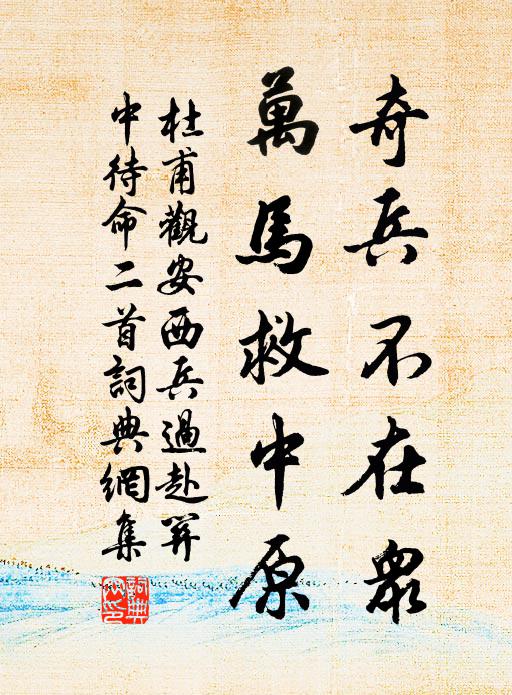 奇兵不在衆
萬馬救中原
杜甫觀安西兵過赴
中待命二首詞典網集